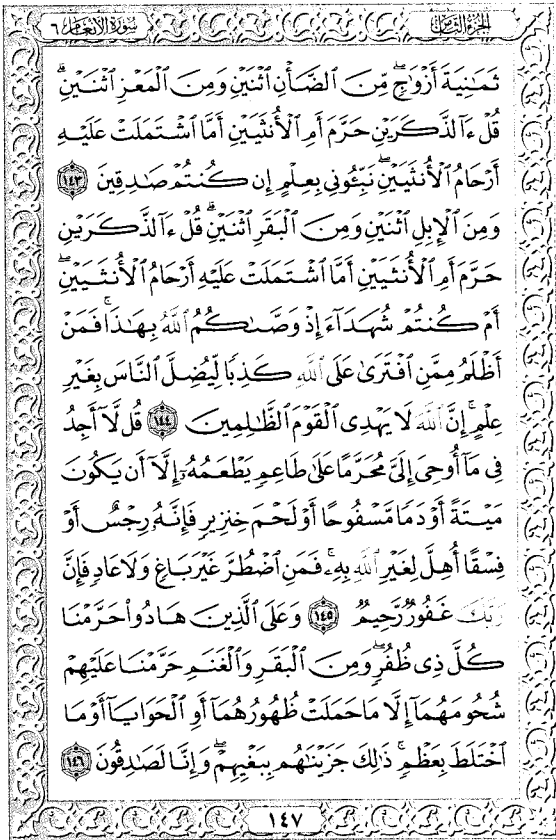 سورة الأنعام ٦
الجزء الثامن
ثَمَٰنِيَةَ أَزۡوَٰجٖۖ مِّنَ ٱلضَّأۡنِ ٱثۡنَيۡنِ وَمِنَ ٱلۡمَعۡزِ ٱثۡنَيۡنِۗ
قُلۡ ءَآلذَّكَرَيۡنِ حَرَّمَ أَمِ ٱلۡأُنثَيَيۡنِ أَمَّا ٱشۡتَمَلَتۡ عَلَيۡهِ
أَرۡحَامُ ٱلۡأُنثَيَيۡنِۖ نَبِّـُٔونِي بِعِلۡمٍ إِن كُنتُمۡ صَٰدِقِينَ ١٤٣
وَمِنَ ٱلۡإِبِلِ ٱثۡنَيۡنِ وَمِنَ ٱلۡبَقَرِ ٱثۡنَيۡنِۗ قُلۡ ءَآلذَّكَرَيۡنِ
حَرَّمَ أَمِ ٱلۡأُنثَيَيۡنِ أَمَّا ٱشۡتَمَلَتۡ عَلَيۡهِ أَرۡحَامُ ٱلۡأُنثَيَيۡنِۖ
أَمۡ كُنتُمۡ شُهَدَآءَ إِذۡ وَصَّىٰكُمُ ٱللَّهُ بِهَٰذَاۚ فَمَنۡ
أَظۡلَمُ مِمَّنِ ٱفۡتَرَىٰ عَلَى ٱللَّهِ كَذِبٗا لِّيُضِلَّ ٱلنَّاسَ بِغَيۡرِ
عِلۡمٍۚ إِنَّ ٱللَّهَ لَا يَهۡدِي ٱلۡقَوۡمَ ٱلظَّٰلِمِينَ ١٤٤ قُل لَّآ أَجِدُ
فِي مَآ أُوحِيَ إِلَيَّ مُحَرَّمًا عَلَىٰ طَاعِمٖ يَطۡعَمُهُۥٓ إِلَّآ أَن يَكُونَ
مَيۡتَةً أَوۡ دَمٗا مَّسۡفُوحًا أَوۡ لَحۡمَ خِنزِيرٖ فَإِنَّهُۥ رِجۡسٌ أَوۡ
فِسۡقًا أُهِلَّ لِغَيۡرِ ٱللَّهِ بِهِۦۚ فَمَنِ ٱضۡطُرَّ غَيۡرَ بَاغٖ وَلَا عَادٖ فَإِنَّ
رَبَّكَ غَفُورٞ رَّحِيمٞ ١٤٥ وَعَلَى ٱلَّذِينَ هَادُواْ حَرَّمۡنَا
كُلَّ ذِي ظُفُرٖۖ وَمِنَ ٱلۡبَقَرِ وَٱلۡغَنَمِ حَرَّمۡنَا عَلَيۡهِمۡ
شُحُومَهُمَآ إِلَّا مَا حَمَلَتۡ ظُهُورُهُمَآ أَوِ ٱلۡحَوَايَآ أَوۡ مَا
ٱخۡتَلَطَ بِعَظۡمٖۚ ذَٰلِكَ جَزَيۡنَٰهُم بِبَغۡيِهِمۡۖ وَإِنَّا لَصَٰدِقُونَ ١٤٦
١٤٧